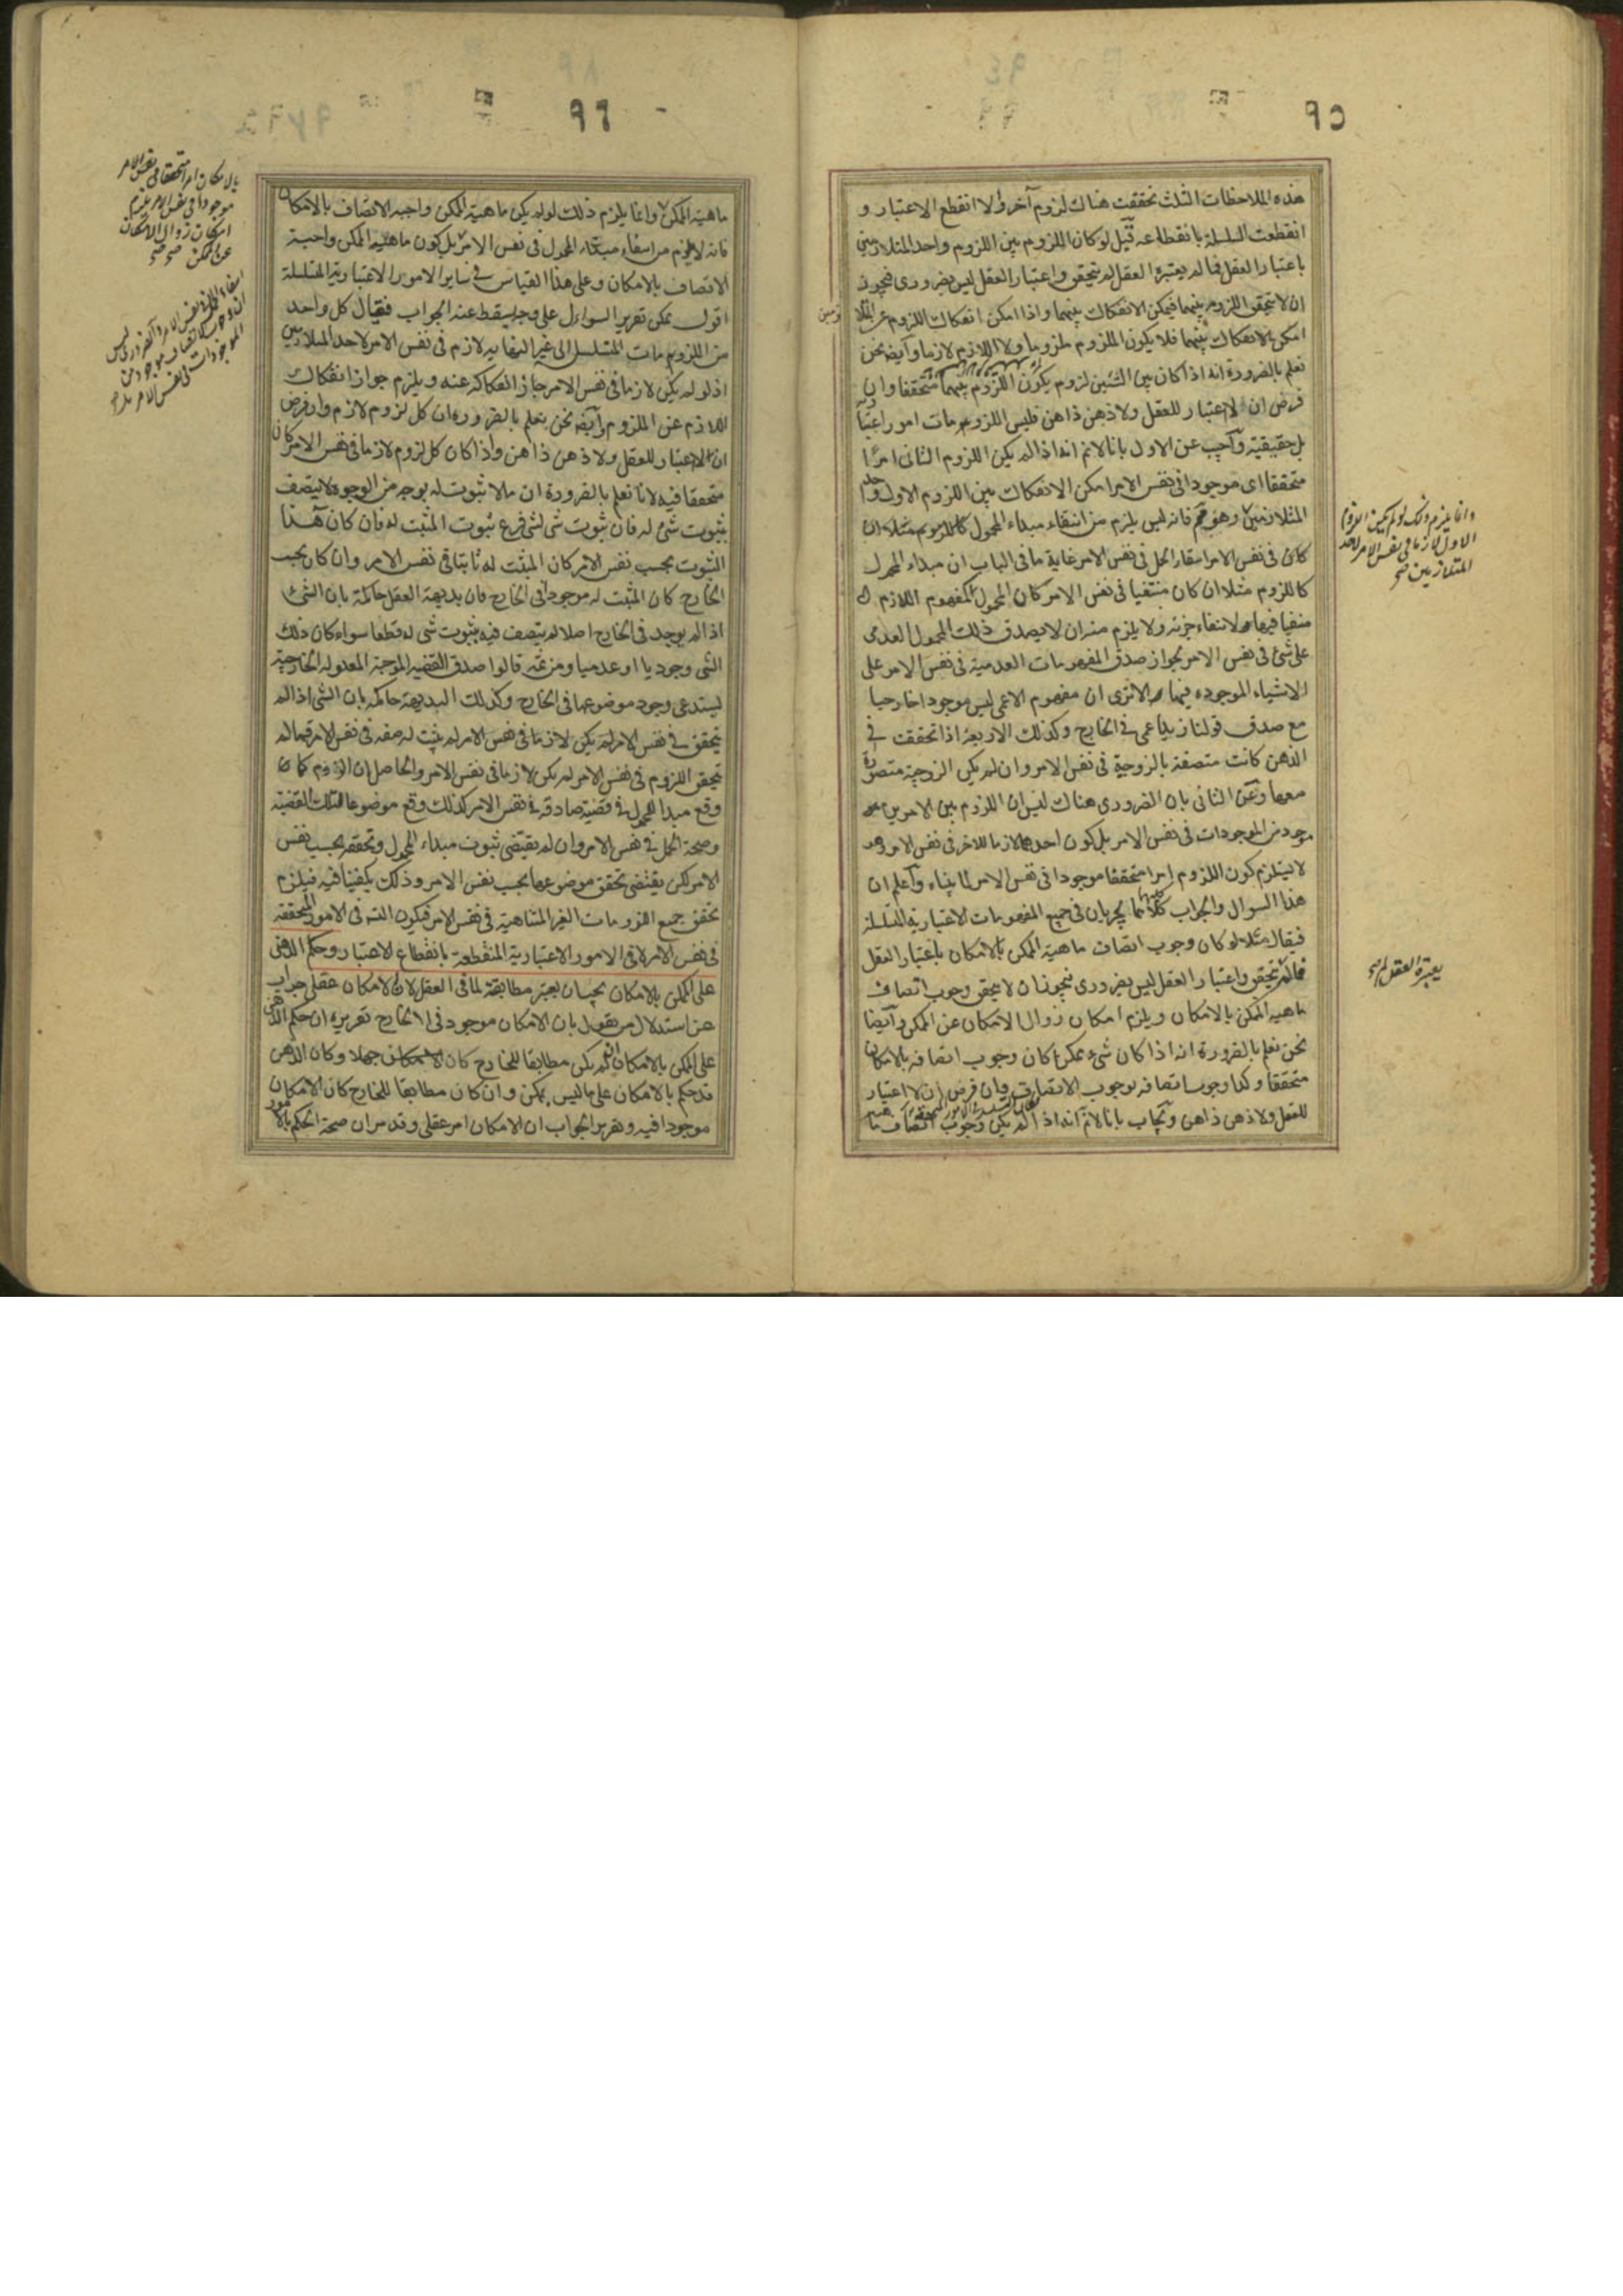 ٩٥
هذه الملاحظات الثلث تحققت هناك لزوم آخر والا انقطع الاعتبار و
انقطعت السلسلة بانقطاعه قيل لو كان اللزوم بين اللزوم واحد المتلازمين
باعتبار العقل فما لم يعتبره العقل لم يتحقق واعتبار العقل ليس بضروري فيجوز
ان لا يتحقق اللزوم بينهما فيمكن الانفكاك بينهما واذا امكن انفكاك اللزوم عن المتلا
زمين
امكن الانفكاك بينهما فلا يكون الملزوم ملزوما ولا اللازم لازما وايضا نحن
نعلم بالضرورة انه اذا كان بين الشيئين لزوم يكون اللزوم بينهما متحققا وان
فرض ان لا اعتبار للعقل ولا ذهن ذاهن فليس اللزومات امورا اعتبارية
بل حقيقية واجيب عن الاول بانا لانم انه اذا لم يكن اللزوم الثاني امرا
متحققا اى موجودا في نفس الامر امكن الانفكاك بين اللزوم الاول واحد
المتلازمين وهو مم فانه ليس يلزم من انتفاء مبداء المحمول كاللزوم مثلا ان
كان في نفس الامر انتفاء الحمل في نفس الامر غاية ما في الباب ان مبداء المحمول
كاللزوم مثلا ان كان منتفيا في نفس الامر كان المحمول كمفهوم اللازم
منفيا فيها لانتفاء جزئه ولا يلزم منه ان لا يصدق ذلك المحمول العدمى
على شئ في نفس الامر لجواز صدق المفهومات العدمية في نفس الامر على
الاشياء الموجوده فيها الا ترى ان مفهوم الاعمى ليس موجودا خارجيا
مع صدق قولنا زيد اعمى في الخارج وكذلك الاربعة اذا تحققت في
الذهن كانت متصفة بالزوجية في نفس الامر وان لم يكن الزوجية متصورة
معها وعن الثاني بان الضرورى هناك ليس ان اللزوم بين الامرين
موجود من الموجودات في نفس الامر بل كون احدهما لازما للاخر في نفس الامر وهو
لا يستلزم كون اللزوم امرا متحققا موجودا في نفس الامر لما بيناه واعلم ان
هذا السوال والجواب كلاهما يجريان في جميع المفهومات الاعتبارية المتسلسلة
فيقال مثلا لو كان وجوب اتصاف ماهية الممكن بالامكان باعتبار العقل
فما لم يتحقق واعتبار العقل ليس بضرورى فيجوز ان لا يتحقق وجوب اتصاف
ماهية الممكن بالامكان ويلزم امكان زوال الامكان عن الممكن وايضا
نحن نعلم بالضرورة انه اذا كان شئ ممكن كان وجوب اتصافه بالامكان
متحققا وكذا وجوب اتصافه بوجوب الاتصاف وان فرض ان لا اعتبار
للعقل ولا ذهن ذاهن ويجاب بانا لانم انه اذا لم يكن وجوب اتصاف
وانما يلزم ذلك لو لم يكن اللزوم
الاول لازما في نفس الامر لاحد
المتلازمين صح
يعتبره العقل لم صح
٩٦
ماهية الممكن وانما يلزم ذلك لو لم يكن ماهية الممكن واجبه الاتصاف بالامكان
فانه لا يلزم من انتفاء مبداء المحمول في نفس الامر بل كون ماهية الممكن واجبة
الاتصاف بالامكان وعلى هذا القياس في ساير الامور الاعتبارية المتسلسلة
اقول يمكن تقرير السوال على وجه يسقط عنه الجواب فيقال كل واحد
من اللزومات المتسلسل الى غير النهايه لازم في نفس الامر لاحد المتلازمين
اذ لو لم يكن لازما في نفس الامر جاز انفكاكه عنه ويلزم جواز انفكاك
اللازم عن الملزوم وايضا نحن نعلم بالضرورة ان كل لزوم لازم وان فرض
ان لا اعتبار للعقل ولا ذهن ذاهن واذا كان كل لزوم لازما في نفس الامر كان
متحققا فيه لانا نعلم بالضرورة ان ما لا ثبوت له بوجه من الوجوه لا يتصف
بثبوت شئ له فان ثبوت شى لشى فرع ثبوت المثبت له فان كان هذا
الثبوت بحسب نفس الامر كان المثبت له ثابتا في نفس الامر وان كان بحسب
الخارج كان المثبت له موجودا في الخارج فان بديهة العقل حاكمة بان الشئ
اذا لم يوجد في الخارج اصلا لم يتصف فيه بثبوت شى له قطعا سواء كان ذلك
الشى وجوديا او عدميا ومن ثمه قالوا صدق القضيه الموجبة المعدوله الخارجية
يستدعى وجود موضوعها في الخارج وكذلك البديهة حاكمة بان الشى اذا لم
يتحقق في نفس الامر لم يكن لازما في نفس الامر لم يثبت له صفه في نفس الامر فما لم
يتحقق اللزوم في نفس الامر لم يكن لازما في نفس الامر والحاصل ان اللزوم كما
وقع مبدا المحمول في قضية صادقه في نفس الامر كذلك وقع موضوعا لتلك القضية
وصحة الحمل في نفس الامر وان لم يقتضى ثبوت مبداء المحمول وتحققه بحسب نفس
الامر لكن يقتضى تحقق موضوعها بحسب نفس الامر وذلك يكفينا فيه فيلزم
تحقق جميع اللزومات الغير المتناهية في نفس الامر فيكون التسـ في الامور المتحققه
في نفس الامر لا في الامور الاعتبارية المنقطعة بانقطاع الاعتبار وحكم الذهن
على الممكن بالامكان يجب ان يعتبر مطابقة لما في العقل لان الامكان عقلى جواب
عن استدلال من يقول بان الامكان موجود في الخارج تقريره ان حكم الذهن
على الممكن بالامكان ان لم يكن مطابقا للخارج كان جهلا وكان الذهن
قد حكم بالامكان على ما ليس بممكن وان كان مطابقا للخارج كان الامكان
موجودا فيه وتقرير الجواب ان الامكان امر عقلى وقد مر ان صحة الحكم بالامور
بالامكان امرا متحققا في نفس الامر
موجودا في نفس الامر يلزم
امكان زوال الامكان
عن الممكن صح
انتفاء الحمل في نفس الامر
الموجودات في نفس الامر